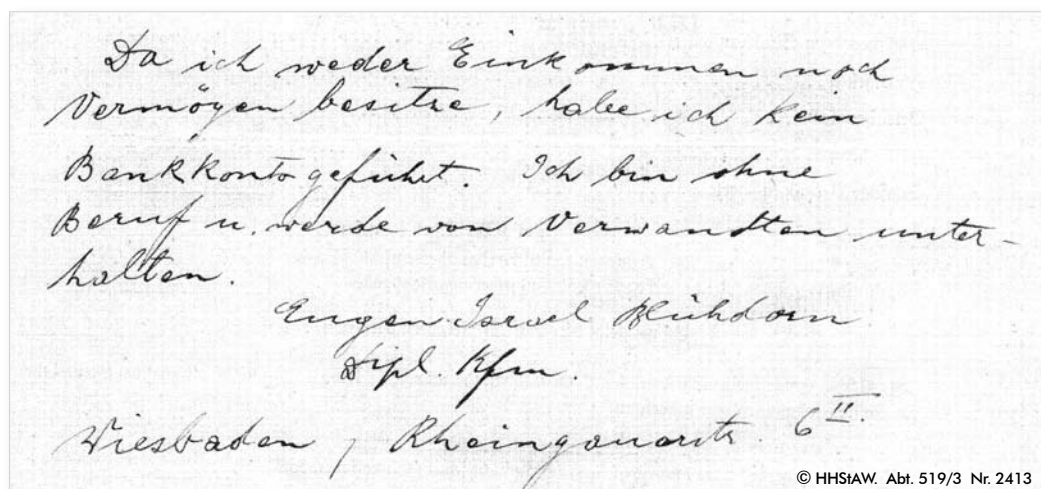 Da ich weder Einkommen noch
Vermögen besitze, habe ich kein
Bankkonto geführt. Ich bin ohne
Beruf u. werde von Verwandten unter-
halten.
Eugen Israel Blühdorn
Dipl. Kfm.
Wiesbaden, Rheingauerstr. 6 II.
© HHStAW. Abt. 519/3 Nr. 2413